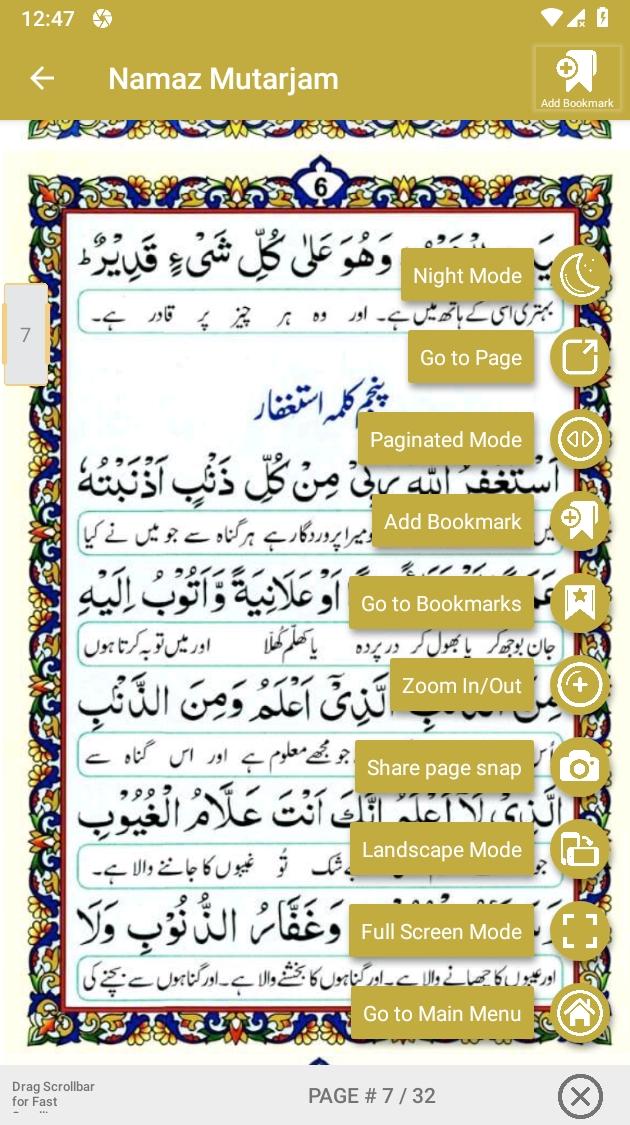 12:47
Namaz Mutarjam
Add Bookmark
6
وَهُوَ عَلٰى كُلِّ شَىْءٍ قَدِيْرٌ ط
Night Mode
بہتری اسی کے ہاتھ میں ہے۔ اور وہ ہر چیز پر قادر ہے۔
7
Go to Page
پنجم کلمہ استغفار
Paginated Mode
اَسْتَغْفِرُ اللّٰهَ رَبِّىْ مِنْ كُلِّ ذَنْبٍ اَذْنَبْتُهٗ
Add Bookmark
میرا پروردگار ہے ہر گناہ سے جو میں نے کیا
اَوْ عَلَانِيَةً وَّاَتُوْبُ اِلَيْهِ
Go to Bookmarks
جان بوجھ کر یا بھول کر در پردہ یا کھلم کھلا اور میں توبہ کرتا ہوں
Zoom In/Out
الَّذِىْٓ اَعْلَمُ وَمِنَ الذَّنْبِ
جو مجھے معلوم ہے اور اس گناہ سے
Share page snap
الَّذِىْ لَآ اَعْلَمُ اِنَّكَ اَنْتَ عَلَّامُ الْغُيُوْبِ
Landscape Mode
جو شک تُو غیبوں کا جاننے والا ہے۔
وَغَفَّارُ الذُّنُوْبِ وَلَا
Full Screen Mode
اور عیبوں کا چھپانے والا ہے۔ اور گناہوں کا بخشنے والا ہے۔ اور گناہوں سے بچنے کی
Go to Main Menu
Drag Scrollbar
for Fast
PAGE # 7 / 32